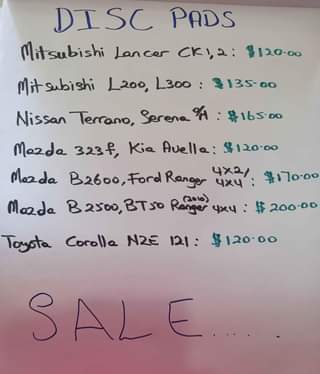 DISC PADS
Mitsubishi Lancer CK1,2: $120.00
Mitsubishi L200, L300: $135.00
Nissan Terrano, Serena : $165.00
Mazda 323f, Kia Avella: $120.00
Mazda B2600, Ford Ranger 4x2/4x4: $170.00
Mazda B2500, BT50 Ranger (2010) 4x4: $200.00
Toyota Corolla NZE 121: $120.00
SALE.....